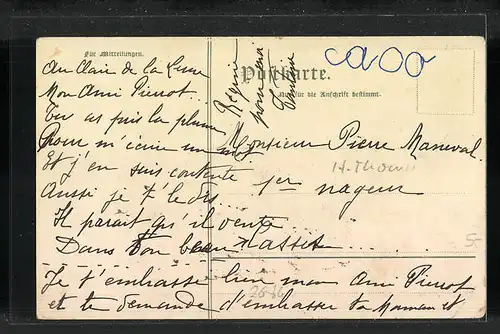 Für Mitteilungen.
Postkarte.
Nur für die Anschrift bestimmt.
Au Clair de la Lune
Mon Ami Pierrot..
Tu as pris la plume
Pour m'écrire un mot
Et j'en suis contente
Aussi je te le dis...
Il parait qu'il vente
Dans ton beau ...
Je t'embrasse bien mon Ami Pierrot
et te demande d'embrasser ta Maman et
pour moi
Monsieur Pierre Maneval
1er nageur
H. Thoma
2616
5-